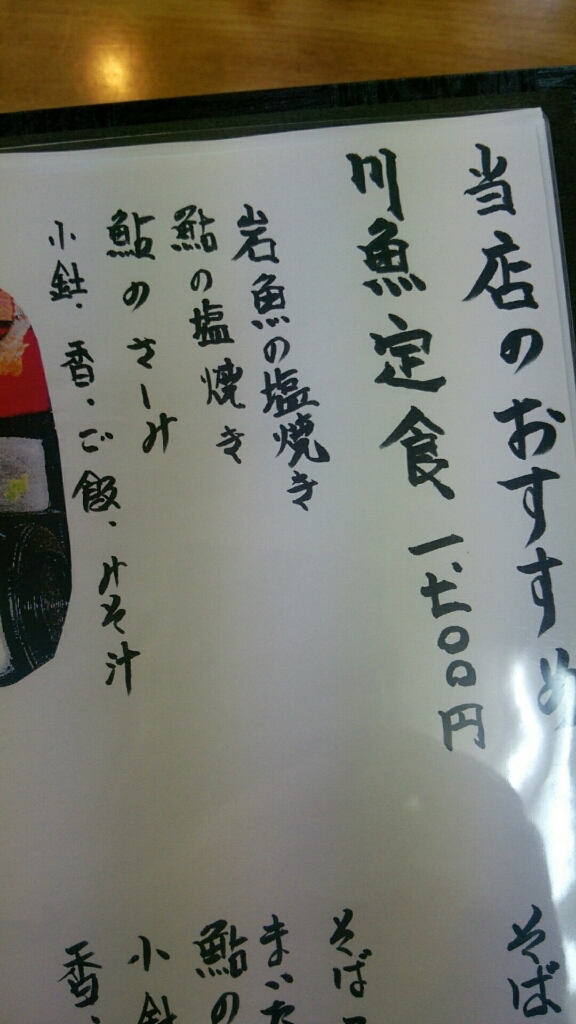 当店のおすすめ
川魚定食 一、七〇〇円
岩魚の塩焼き
鮎の塩焼き
鮎のさしみ
小鉢、香、ご飯、みそ汁
そば
そば
まいた
鮎の
小鉢
香、